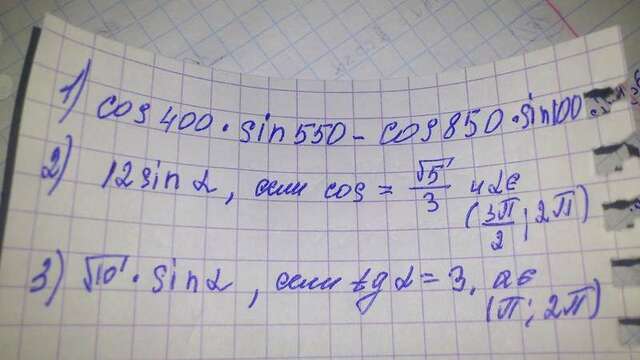 1) cos 400 · sin 550 - cos 850 · sin 100
2) 12 sin α, если cos = √5/3 и α ∈ (3π/2; 2π)
3) √10 · sin α, если tg α = 3, α ∈ (π; 2π)